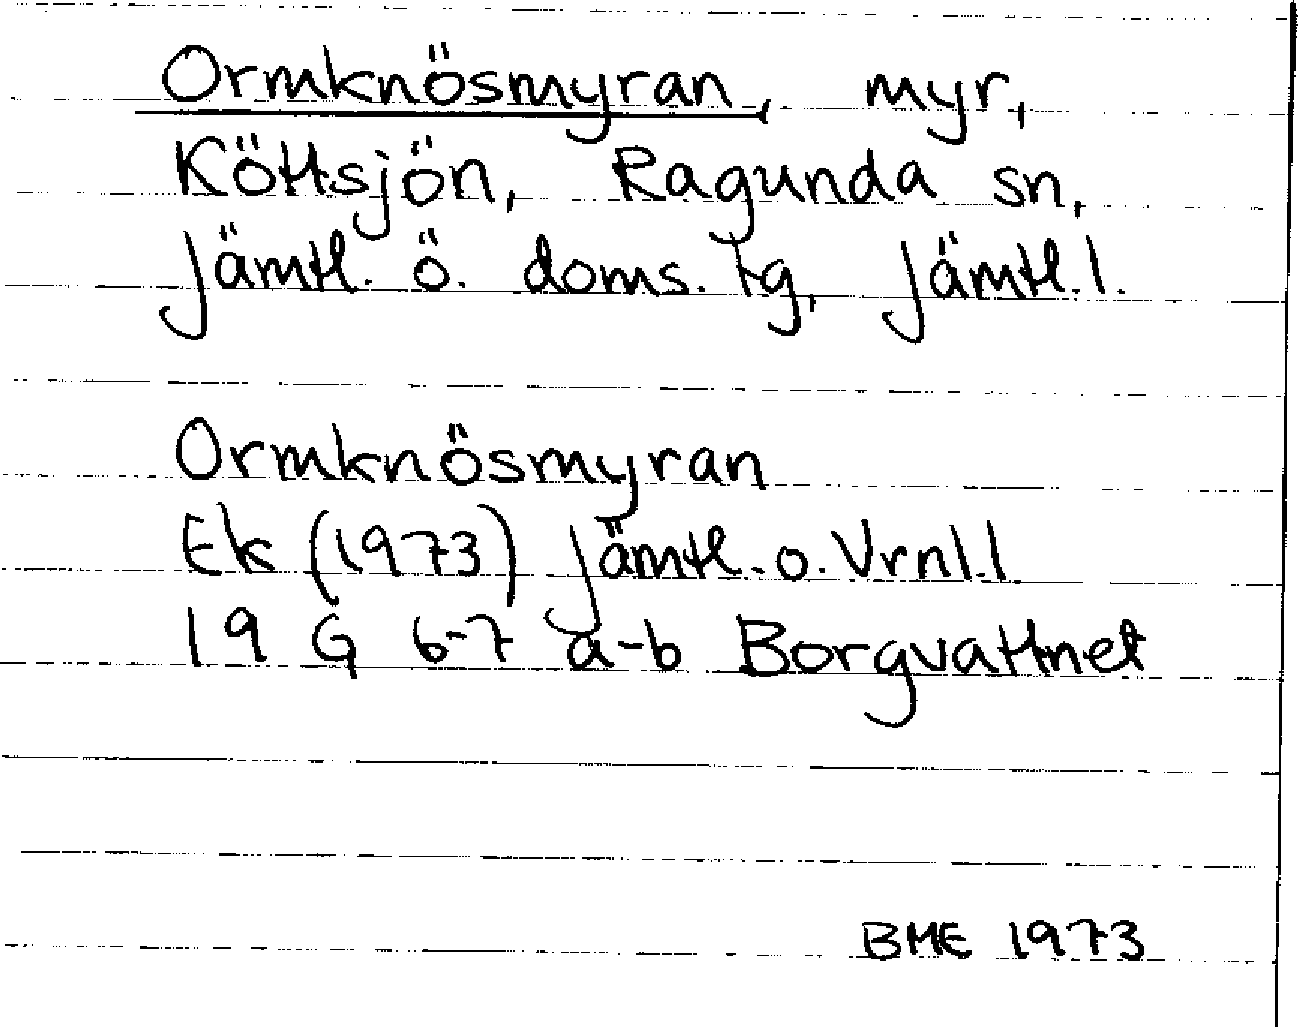 Ormknösmyran, myr,
Köttsjön, Ragunda sn,
Jämtl. ö. doms. tg, Jämtl. l.
Ormknösmyran
Ek (1973) Jämtl. o. Vrml. l
19 G 6-7 a-b Borgvattnet
BME 1973